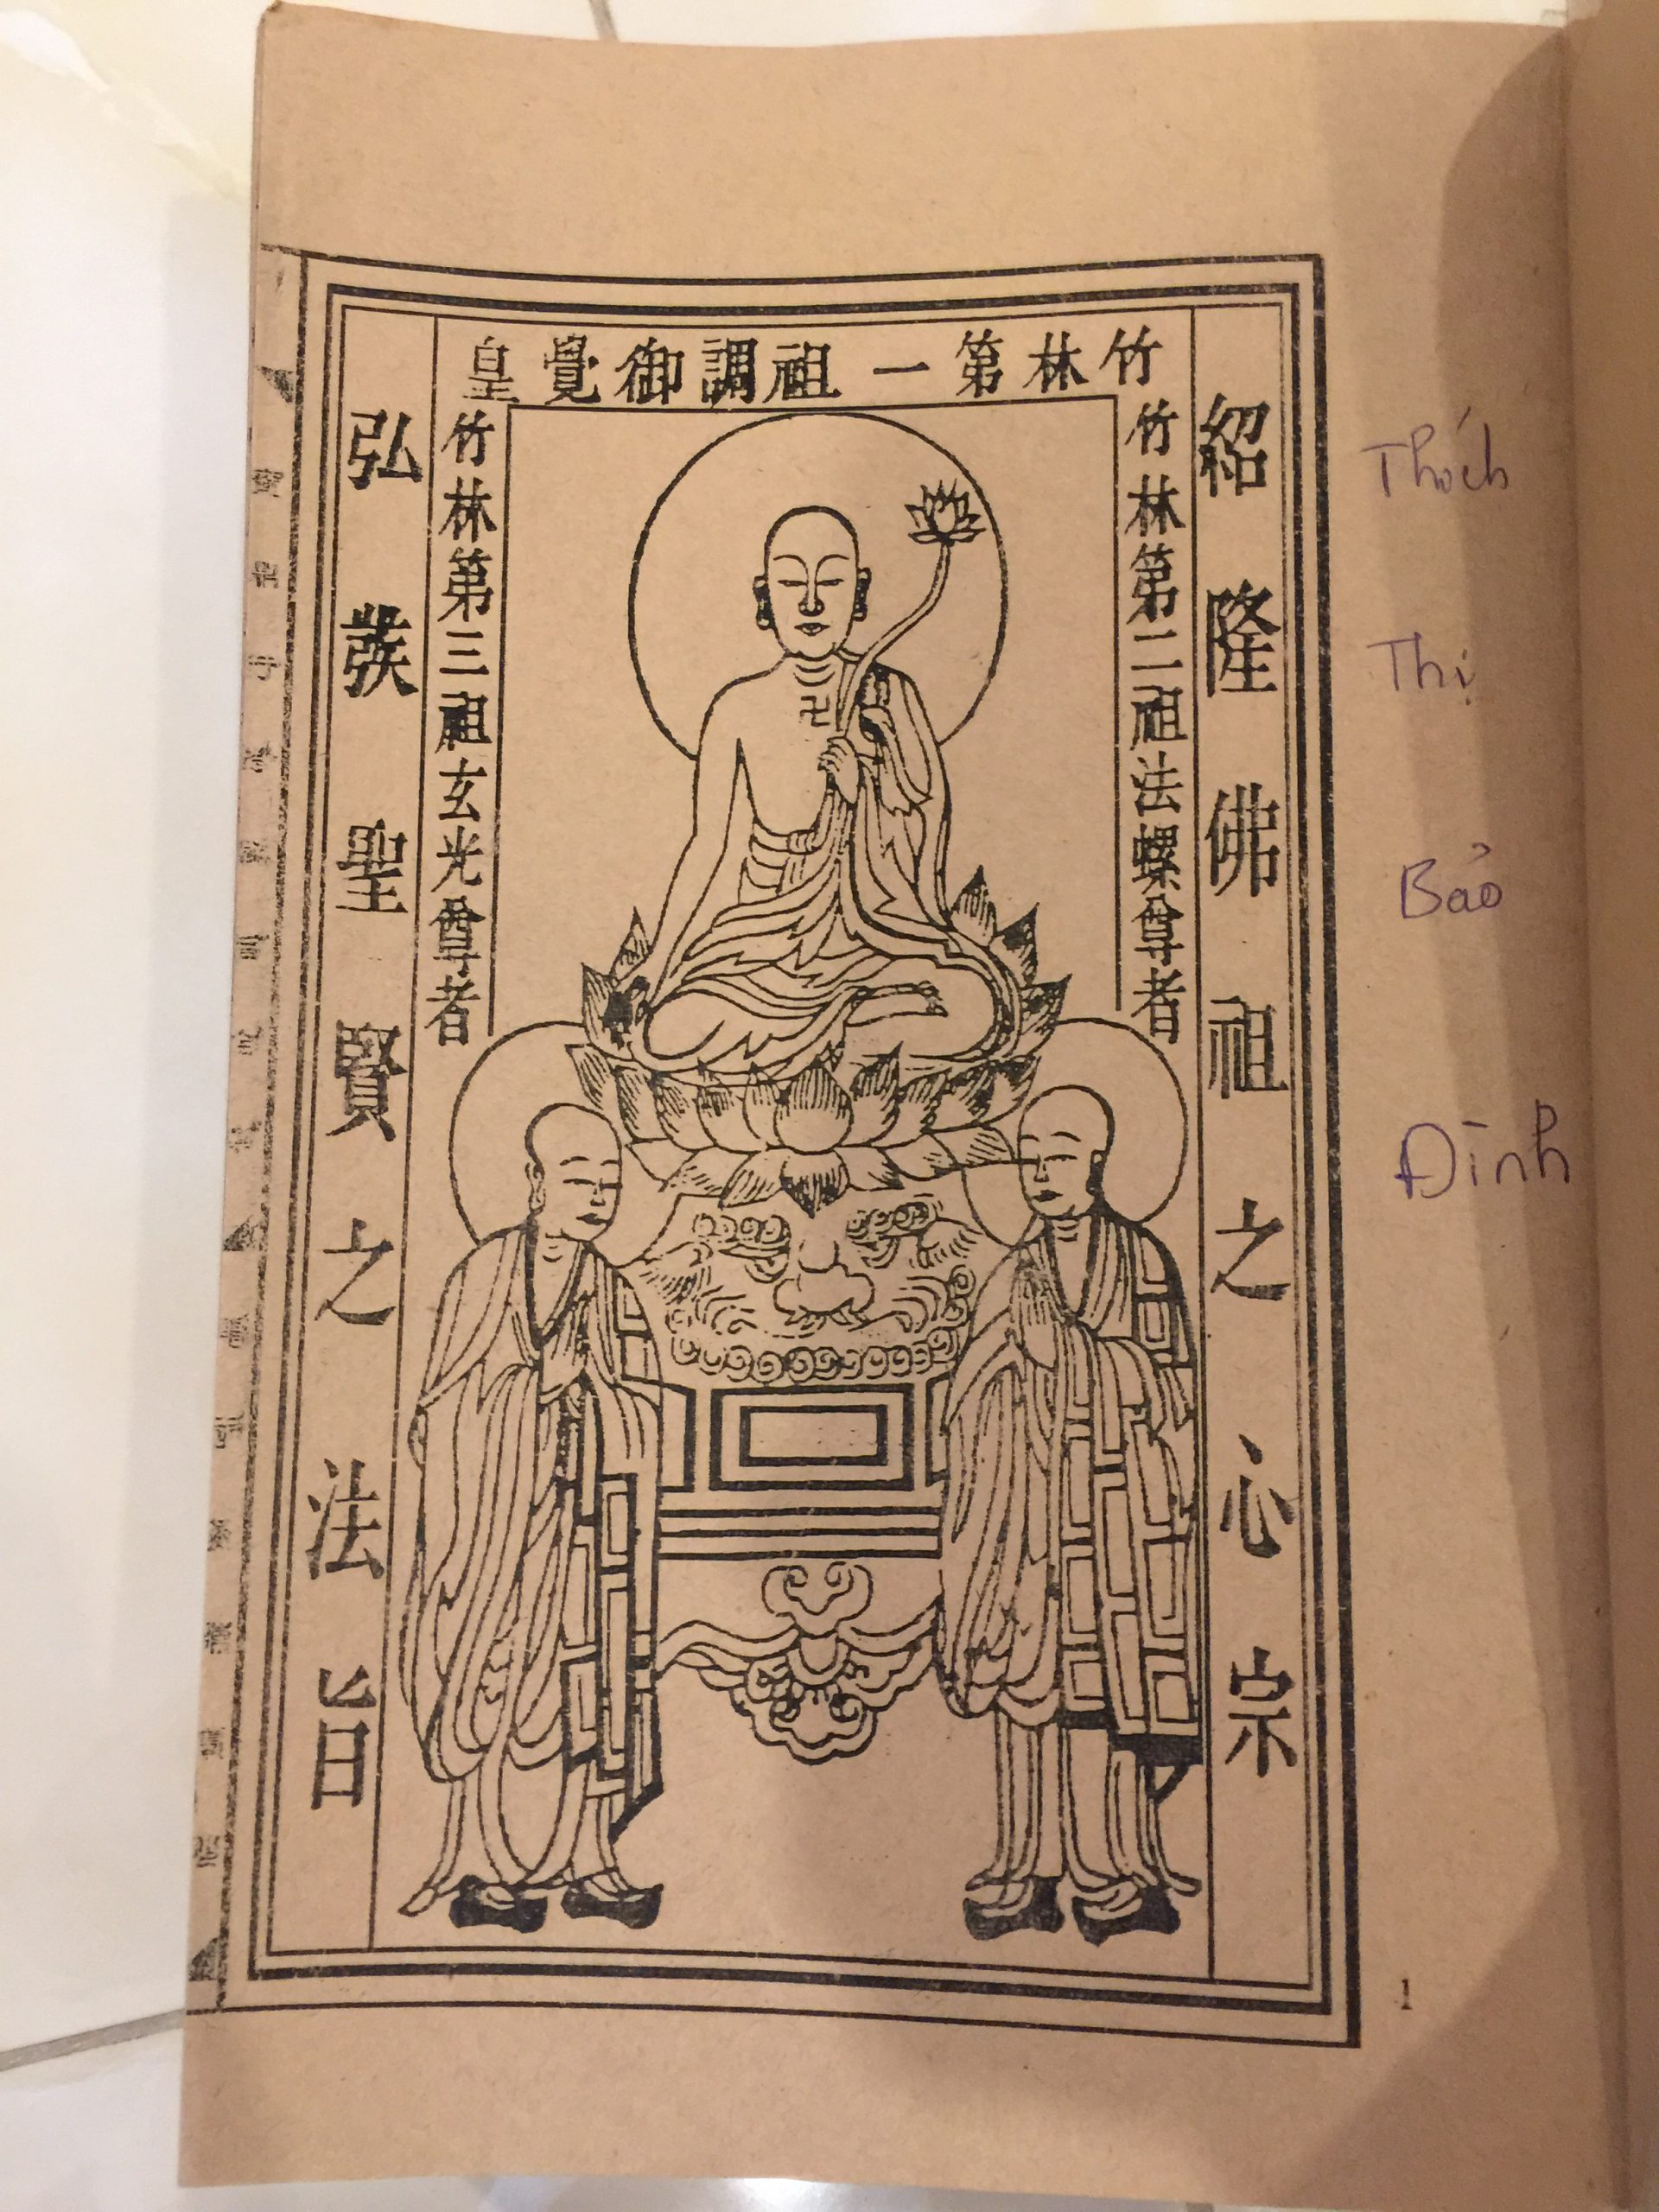 紹隆佛祖之心宗
竹林第一祖調御覺皇
竹林第二祖法螺尊者
竹林第三祖玄光尊者
弘發聖賢之法旨
Thích
Thị
Bảo
Đình
1